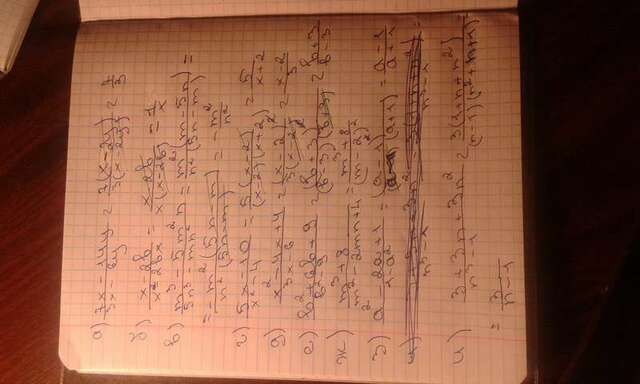 а) (7x − 14y)/(3x − 6y) = (7(x − 2y))/(3(x − 2y)) = 7/3
б) (x − 2b)/(x² − 2bx) = (x − 2b)/(x(x − 2b)) = 1/x
в) (m³ − 5m²n)/(5n³ − mn²) = (m²(m − 5n))/(n²(5n − m)) =
= (−m²(5n − m))/(n²(5n − m)) = −m²/n²
г) (5x − 10)/(x² − 4) = (5(x − 2))/((x − 2)(x + 2)) = 5/(x + 2)
д) (x² − 4x + 4)/(3x − 6) = (x − 2)²/(3(x − 2)) = (x − 2)/3
е) (b² + 6b + 9)/(b² − 9) = (b + 3)²/((b − 3)(b + 3)) = (b + 3)/(b − 3)
ж) (m³ + 8)/(m² − 2mn + 4) = (m³ + 8)/(m − 2)²
з) (a² − 2a + 1)/(1 − a²) = (a − 1)²/((a + 1)) = (a − 1)/(a + 1)
и) (3 + 3n + 3n²)/(n³ − 1) = (3(1 + n + n²))/((n − 1)(n² + n + 1)) =
= 3/(n − 1)